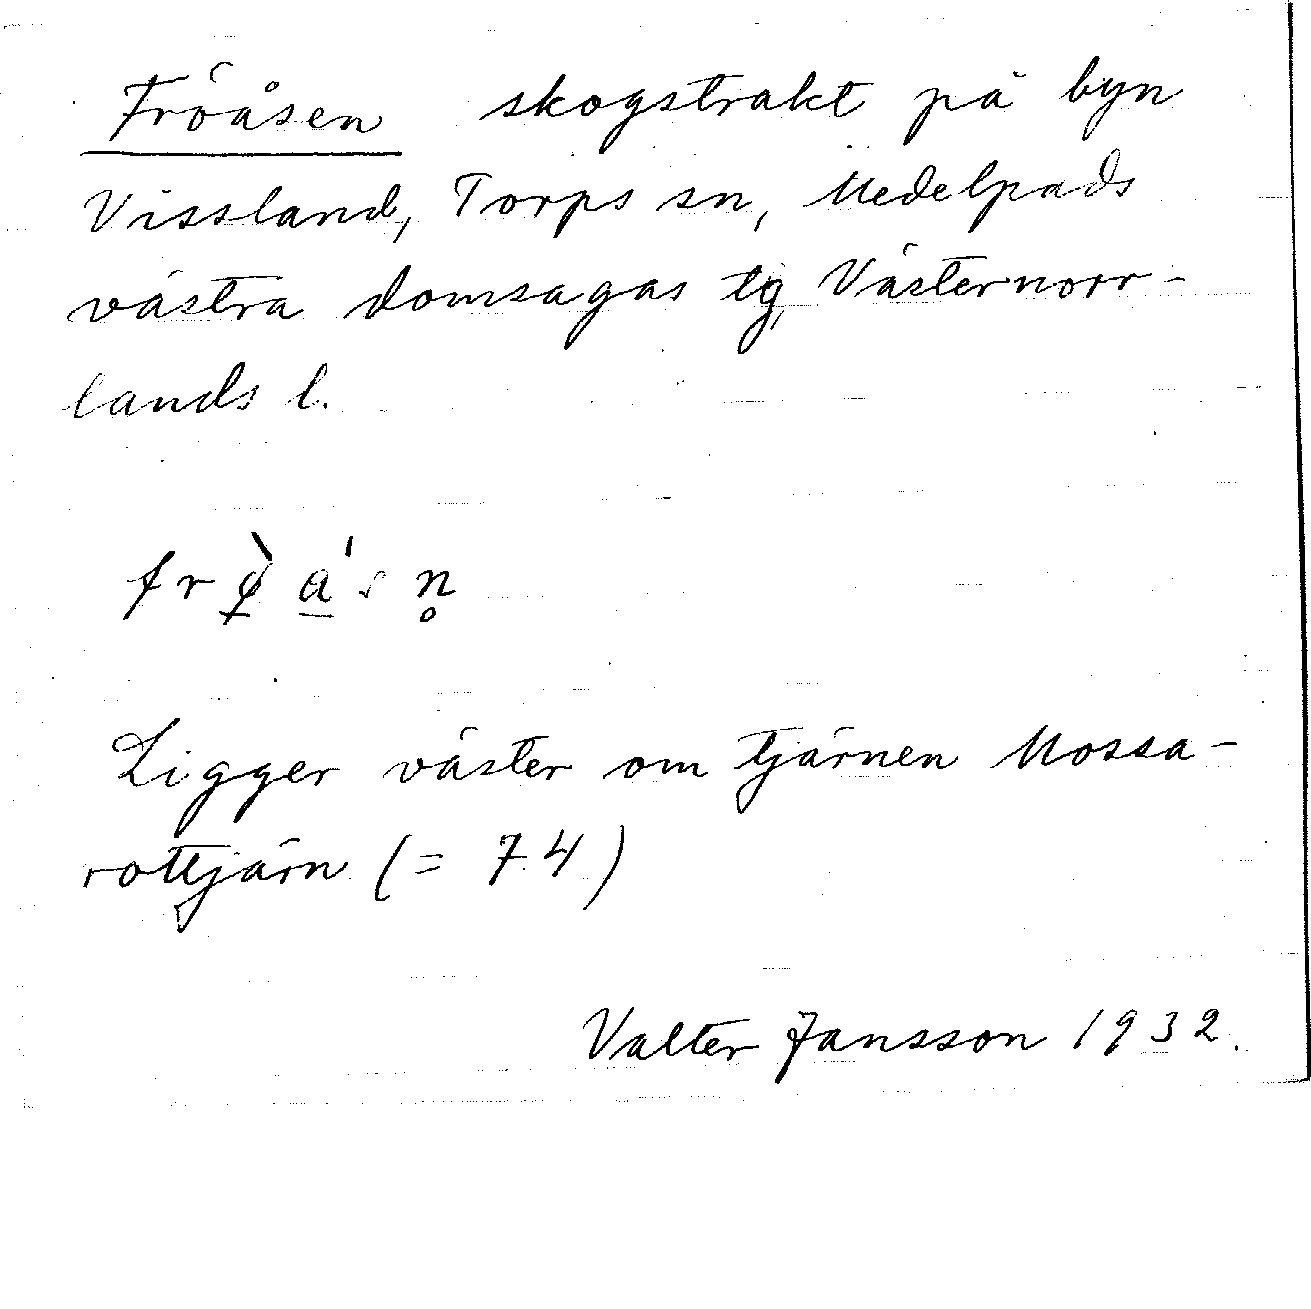 Fröåsen skogstrakt på byn
Vissland, Torps sn, Medelpads
västra domsagas tg, Västernorr-
lands l.
frø̱̀ a̱'s n̥
Ligger väster om tjärnen Mossa-
rottjärn (= 74)
Valter Jansson 1932.